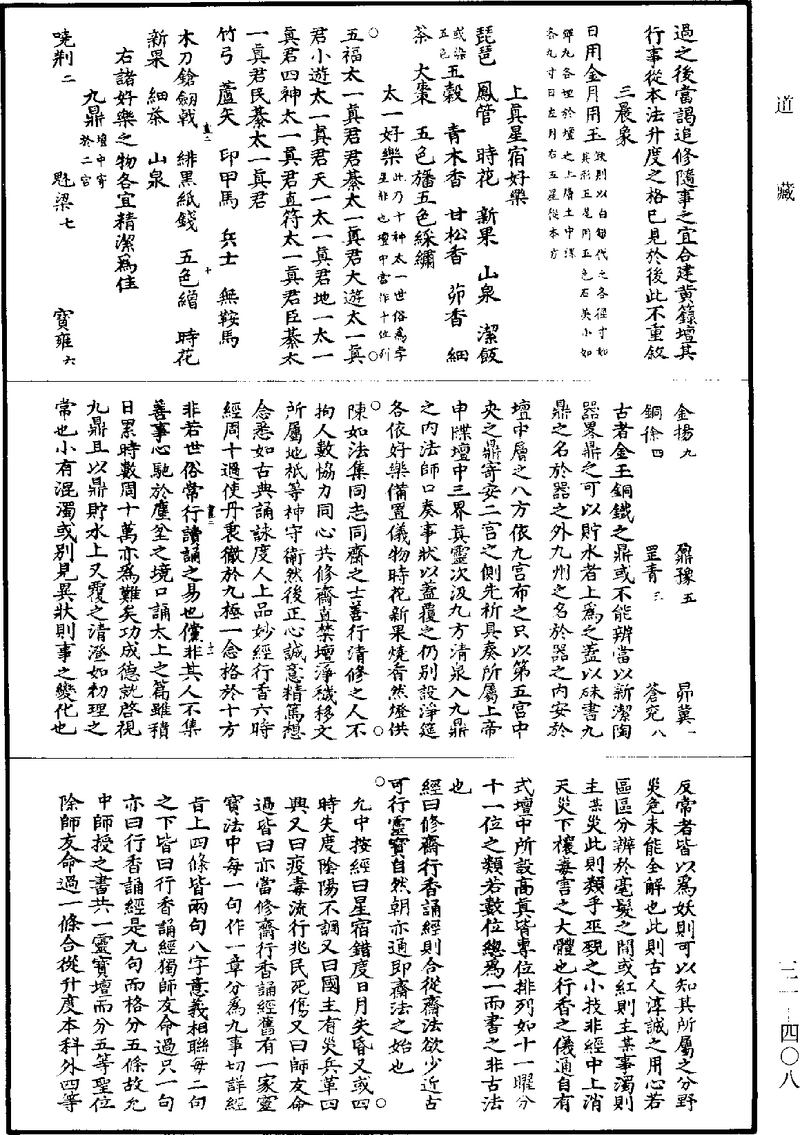 道藏
過之後當謁追修隨事之宜合建黃籙壇其
行事從本法升度之格已見於後此不重敘
三晨象
日用金月用玉
上真星宿好樂
琵琶 鳳管 時花 新果 山泉 潔飯
或染五色
五穀 青木香 甘松香 茆香 細
茶 大棗 五色旛五色綵繡
太一好樂
五福太一真君君綦太一真君大遊太一真
君小遊太一真君天一太一真君地一太一
真君四神太一真君直符太一真君臣綦太
一真君民綦太一真君
竹弓 蘆矢 印甲馬 兵士 無鞍馬
木刀鎗劒戟 緋黑紙錢 五色繒 時花
新果 細茶 山泉
右諸好樂之物各宜精潔為佳
九鼎壇中寄於二宮
曉荆二 魁梁七 寶雍六
金揚九 鼐豫五 昴冀一
銅徐四 罡青三 蒼兖八
古者金玉銅鐵之鼎或不能辦當以新潔陶
器畧鼎之可以貯水者上為之蓋以硃書九
鼎之名於器之外九州之名於器之內安於
壇中層之八方依九宮布之只以第五宮中
央之鼎寄安二宮之側先祈具奏所屬上帝
申牒壇中三界真靈次汲九方清泉入九鼎
之內法師口奏事狀以蓋覆之仍別設淨筵
各依好樂備置儀物時花新果燒香然燈供
陳如法集同志同齋之士善行清修之人不
拘人數協力同心共修齋直禁壇淨穢移文
所屬地祇等神守衛然後正心誠意精篤想
念悉如古典誦詠度人上品妙經行香六時
經周十過使丹衷徹於九極一念格於十方
非若世俗常行讀誦之易也儻非其人不集
善事心馳於塵坌之境口誦太上之篇雖積
日累時數周十萬亦為難矣功成德就啓視
九鼎且以鼎貯水上又覆之清澄如初理之
常也小有混濁或別見異狀則事之變化也
反常者皆以為妖則可以知其所屬之分野
災危未能全解也此則古人淳誠之用心若
區區分辨於毫髮之間或紅則主某事濁則
主某災此則類乎巫覡之小技非經中上消
天災下禳毒害之大體也行香之儀通自有
式壇中所設高真皆專位排列如十一曜分
十一位之類若數位總為一而書之非古法
也
經曰修齋行香誦經則合從齋法欲少近古
可行靈寶自然朝亦通即齋法之始也
允中按經曰星宿錯度日月失昏又或四
時失度陰陽不調又曰國主有災兵革四
興又曰疫毒流行兆民死傷又曰師友命
過皆曰亦當修齋行香誦經舊有一家靈
寶法中每一句作一章分為九事切詳經
旨上四條皆兩句八字意義相聯每二句
之下皆曰行香誦經獨師友命過只一句
亦曰行香誦經是九句而格分五條故允
中師授之書共一靈寶壇而分五等聖位
除師友命過一條合從升度本科外四等
三一—四〇八